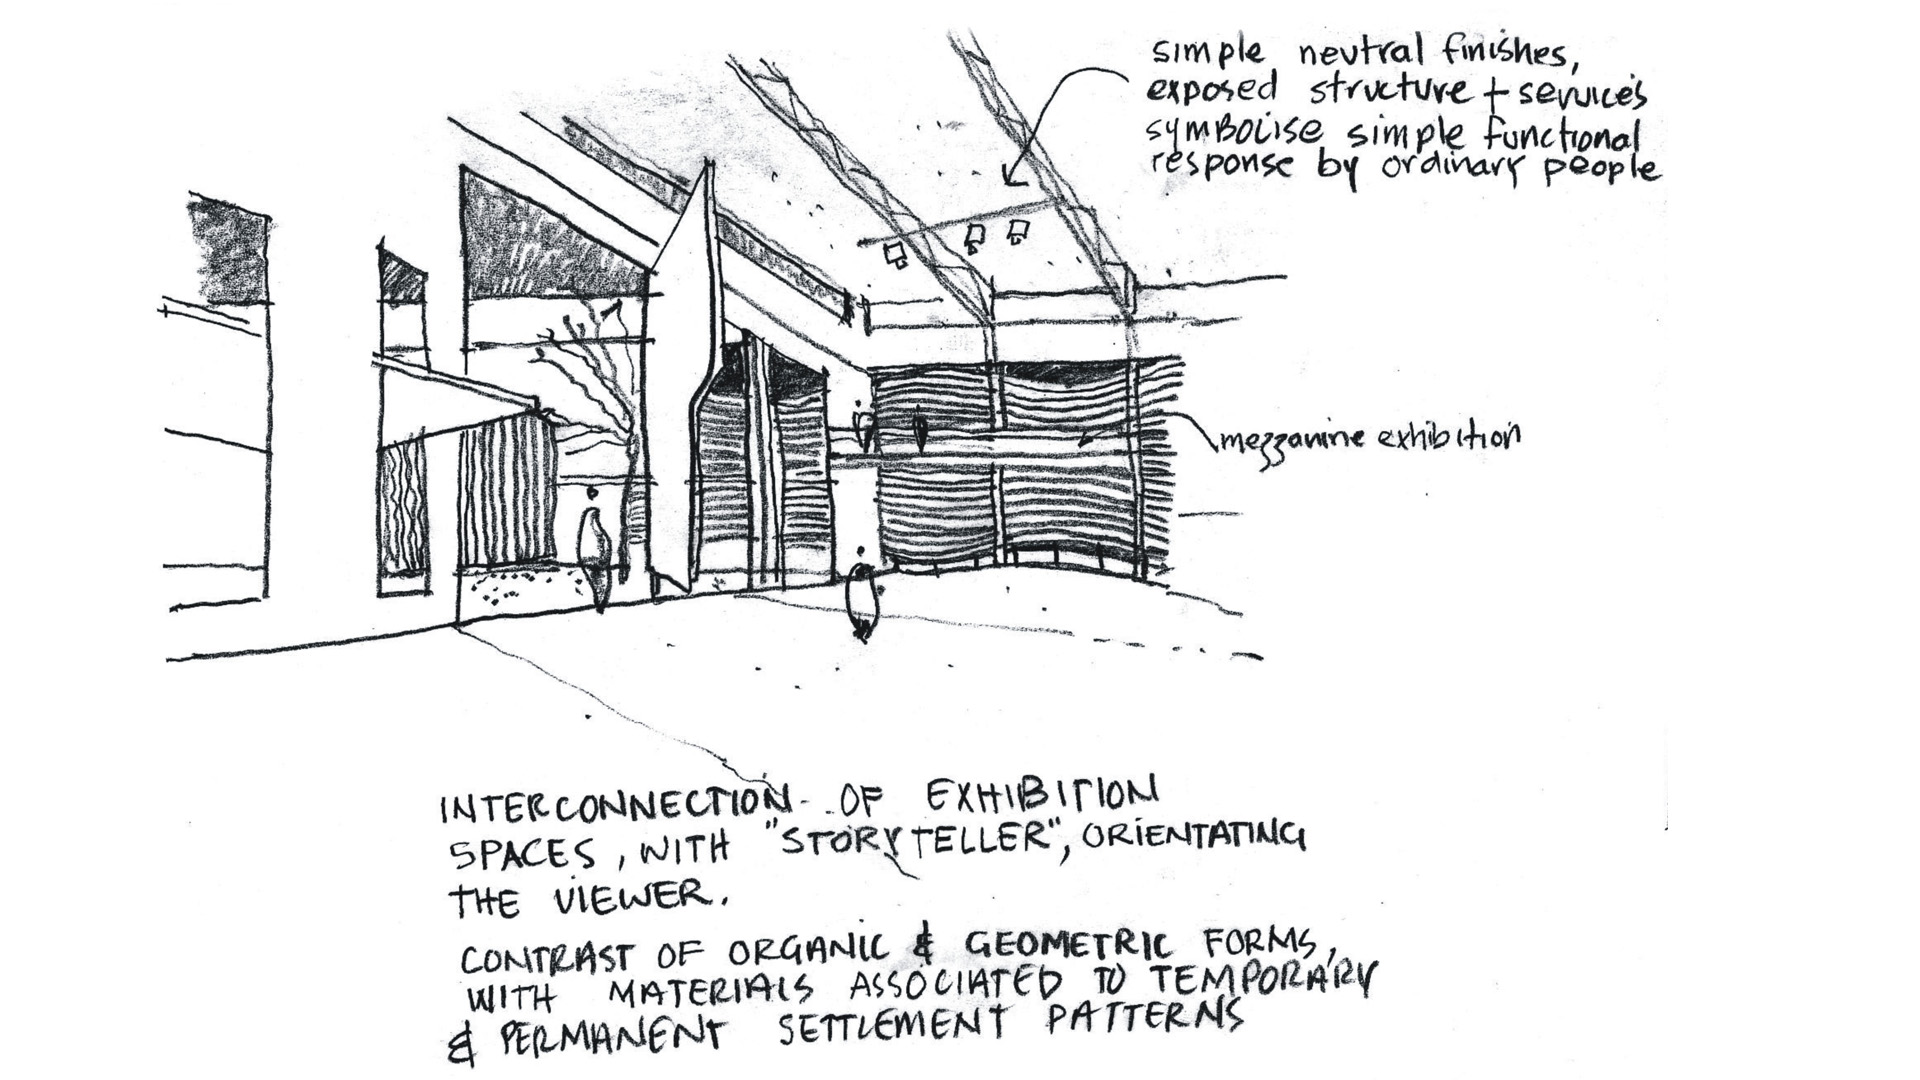 simple neutral finishes,
exposed structure + services
symbolise simple functional
response by ordinary people
mezzanine exhibition
INTERCONNECTION OF EXHIBITION
SPACES, WITH "STORYTELLER", ORIENTATING
THE VIEWER.
CONTRAST OF ORGANIC & GEOMETRIC FORMS,
WITH MATERIALS ASSOCIATED TO TEMPORARY
& PERMANENT SETTLEMENT PATTERNS